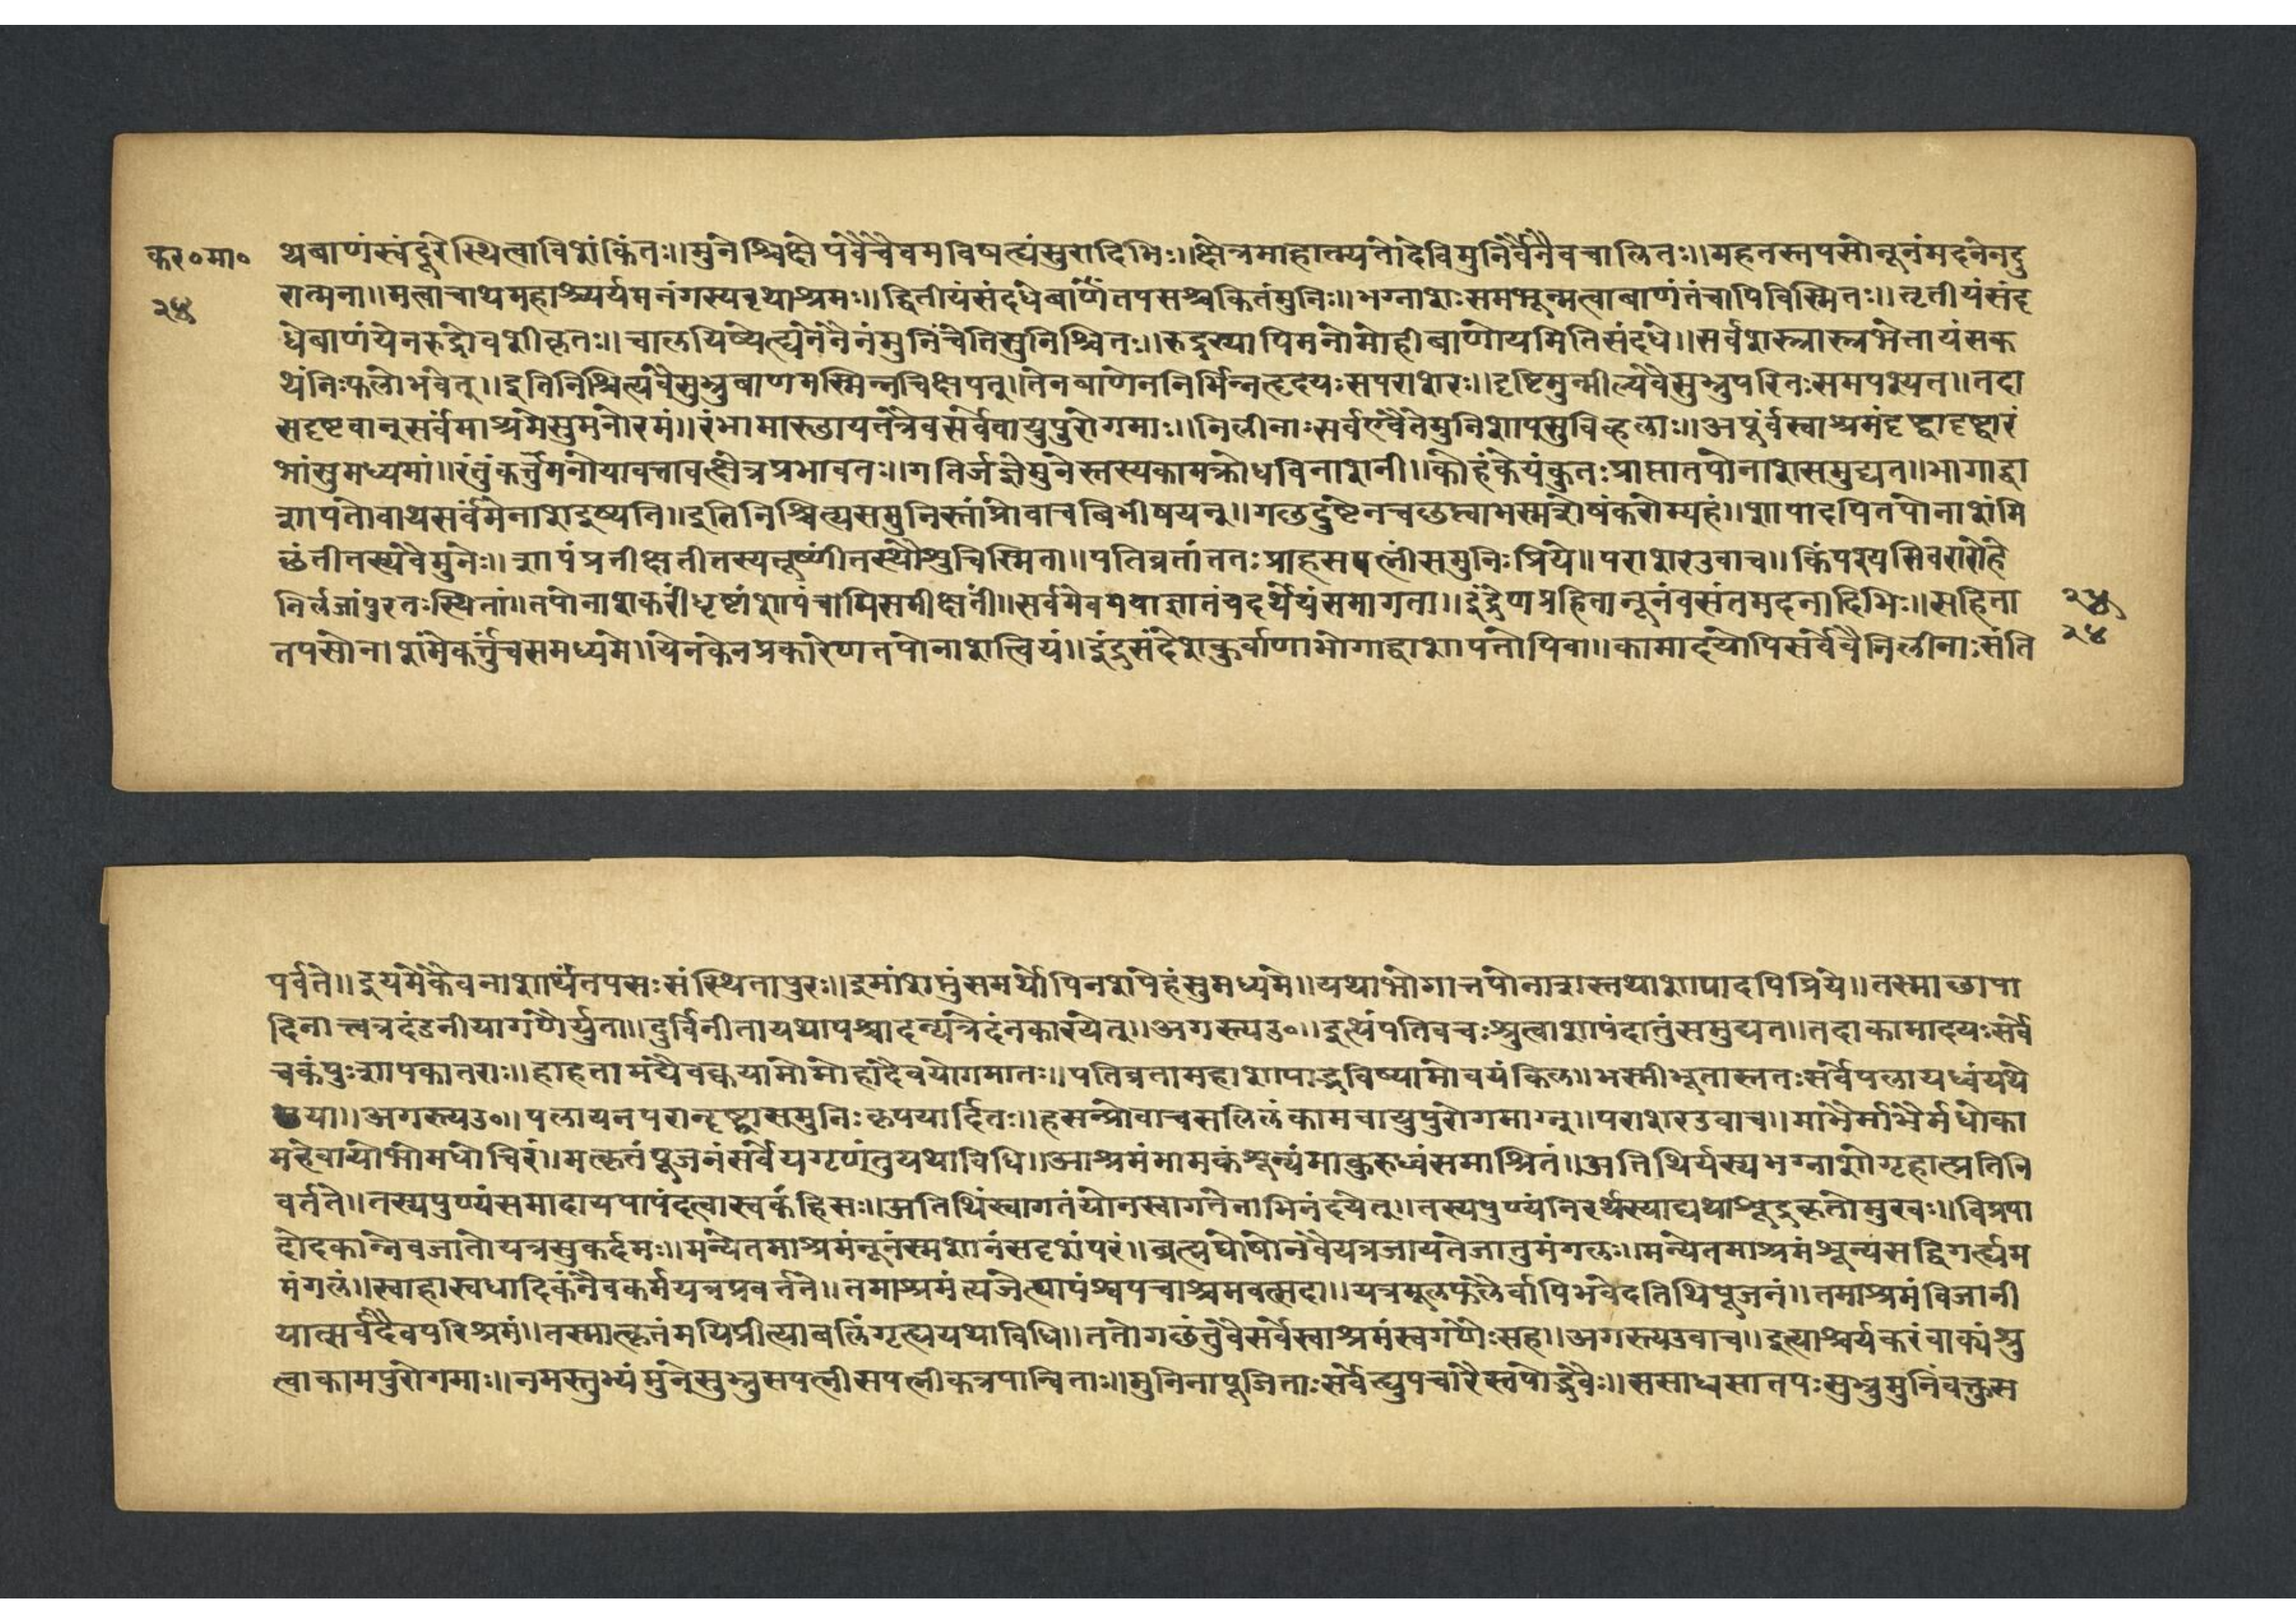 कर॰मा॰
२५
थबाणंस्वंदूरेस्थित्वाविशंकितः॥मुनेश्चिक्षेपवैचैवमविषह्यंसुरादिभिः॥क्षेत्रमाहात्म्यतोदेविमुनिर्वैनैवचालितः॥महतस्तपसोनूनंमदनेनदु
रात्मना॥मत्वाचाथमहाश्चर्यमनंगस्यवृथाश्रमः॥द्वितीयंसंदधेबाणंतपसश्चकितंमुनिः॥भग्नाशःसमभून्मत्वाबाणंतंचापिविस्मितः॥तृतीयंसंद
धेबाणंयेनरुद्रोवशीकृतः॥चालयिष्येत्द्यनेनैनंमुनिंचेतिसुनिश्चितः॥रुद्रस्यापिमनोमोहीबाणोयमितिसंदधे॥सर्वशस्त्रास्त्रभेत्तायंसक
थंनिःफलोभवेत्॥इतिनिश्चित्यवैसुभ्रुबाणमस्मिन्नचिक्षपत्।तेनबाणेननिर्भिन्नहृदयःसपराशरः॥दृष्टिमुन्मील्यवैसुभ्रुपरितःसमपश्यत॥तदा
सदृष्टवान्सर्वमाश्रमेसुमनोरमं॥रंभामारुडायतंत्रैवसर्वेवायुपुरोगमाः॥निलीनाःसर्वएवैतेमुनिशापसुविह्वलाः॥अपूर्वस्वाश्रमंदृष्ट्वादृष्ट्वारं
भांसुमध्यमां॥रंतुंकर्त्तुमनोयावत्तावत्क्षेत्रप्रभावतः॥गतिर्जज्ञेमुनेस्तस्यकामक्रोधविनाशनी॥कोहंकेयंकुतःप्राप्तातपोनाशसमुद्यत॥भागाद्वा
शापतोवाथसर्वमेनाशदुष्यति॥इतिनिश्चित्यसमुनिस्तांप्रोवाचबिभीषयन्॥गछदुष्टेनचछत्वाभस्मशेषंकरोम्यहं॥शापादपितपोनाशंमि
छंतीतस्यवैमुनेः॥शापंप्रतीक्षतीतस्यतूष्णींतस्थौशुचिस्मिता॥पतिव्रतांततःप्राहसपत्नींसमुनिःप्रिये॥पराशरउवाच॥किंपश्यसिवरारोहे
निर्लजांपुरतःस्थितां॥तपोनाशकरींधृष्टांशापंचापिसमीक्षतीं॥सर्वमेवमयाज्ञातंयदर्थेयंसमागता॥इंद्रेणप्रहितानूनंवसंतमदनादिभिः॥सहिता
तपसोनाशंमेकर्त्तुंचसमध्यमे॥येनकेनप्रकारेणतपोनाशत्वियं॥इंद्रसंदेशकुर्वाणाभोगाद्वाशापतोपिवा॥कामादयोपिसर्वेवैनिलीनाःसंति
२५
२४
पर्वते॥इयमेकैवनाशार्थंतपसःसंस्थितापुरः॥इमांशप्तुंसमर्थोपिनशपेहंसुमध्यमे॥यथाभोगात्तपोनाशस्तथाशापादपिप्रिये॥तस्माछापा
दिनात्त्वत्रदंडनीयागणैर्युता॥दुर्विनीतायथापश्चादन्यत्रेदंनकारयेत्॥अगस्त्यउ॰॥इत्थंपतिवचःश्रुत्वाशापंदातुंसमुद्यत॥तदाकामादयःसर्वे
चकंपुःशापकातराः॥हाहतामंद्यैवक्वयामोमोहादैवयोगमातः॥पतिव्रतामहाशापाद्भविष्यामोवयंकिल॥भस्मीभूतास्ततःसर्वेपलायध्वंयथे
छया॥अगस्त्यउ॰॥पलायनपरान्दृष्ट्वासमुनिःकृपयार्दितः॥हसन्प्रोवाचसलिलंकामवायुपुरोगमाग्नु॥पराशरउवाच॥माभैर्माभैर्मधोका
महेवायोभोमधोचिरं॥मत्कृतंपूजनंसर्वेयगृणंतुयथाविधि॥आश्रमंमामकंशून्यंमाकुरुध्वंसमाश्रितं॥अतिथिर्यस्यभग्नाशोगृहात्प्रतिनि
वर्तते॥तस्यपुण्यंसमादायपापंदत्वास्वकंहिसः॥अतिथिंस्वागतंयोनस्वागतेनाभिनंदयेत्॥तस्यपुण्यंनिरर्थस्याद्यथाश्रूद्रकृतोमुखः॥विप्रपा
दोदकान्नैवजातोयत्रसुकर्दमः॥मन्येतमाश्रमंनूनंस्मशानंसदृशंपरं॥ब्रह्मघोषोनवैयत्रजायतेजातुमंगलः॥मन्येतमाश्रमंशून्यंसद्विगर्ह्यम
मंगलं॥स्वाहास्वधादिकंनैवकर्मयत्रप्रवर्त्तते॥तमाश्रमंत्यजेत्पापंश्वपचाश्रमवत्सदा॥यत्रमूलफलैर्वापिभवेदतिथिपूजनं॥तमाश्रमंविजानी
यात्सर्वदैवपरिश्रमं॥तस्मात्कृतंमयिप्रीत्याबलिंगृत्ह्ययथाविधि॥ततोगछंतुवैसर्वेस्वाश्रमंस्वगणैःसह॥अगस्त्यउवाच॥इत्याश्चर्यकरंवाक्यंश्रु
त्वाकामपुरोगमाः॥नमस्तुभ्यंमुनेसुभ्रुसपत्नीसपत्नीकत्रपान्विताः॥मुनिनापूजिताःसर्वेत्द्युपचारैस्तपोद्भवैः॥ससाध्वसातपःसुभ्रुमुनिंवक्तुस